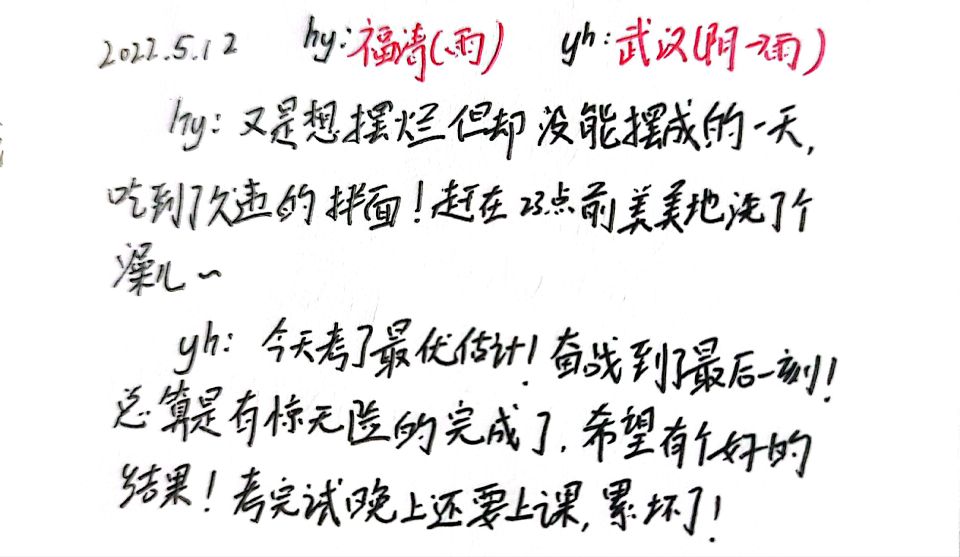 2022.5.12 hy:福清(雨) yh:武汉(阴→雨)
hy:又是想摆烂但却没能摆成的一天,
吃到了久违的拌面!赶在23点前美美地洗了个
澡儿~
yh:今天考了最优估计!奋战到了最后一刻!
总算是有惊无险的完成了,希望有个好的
结果!考完试晚上还要上课,累坏了!